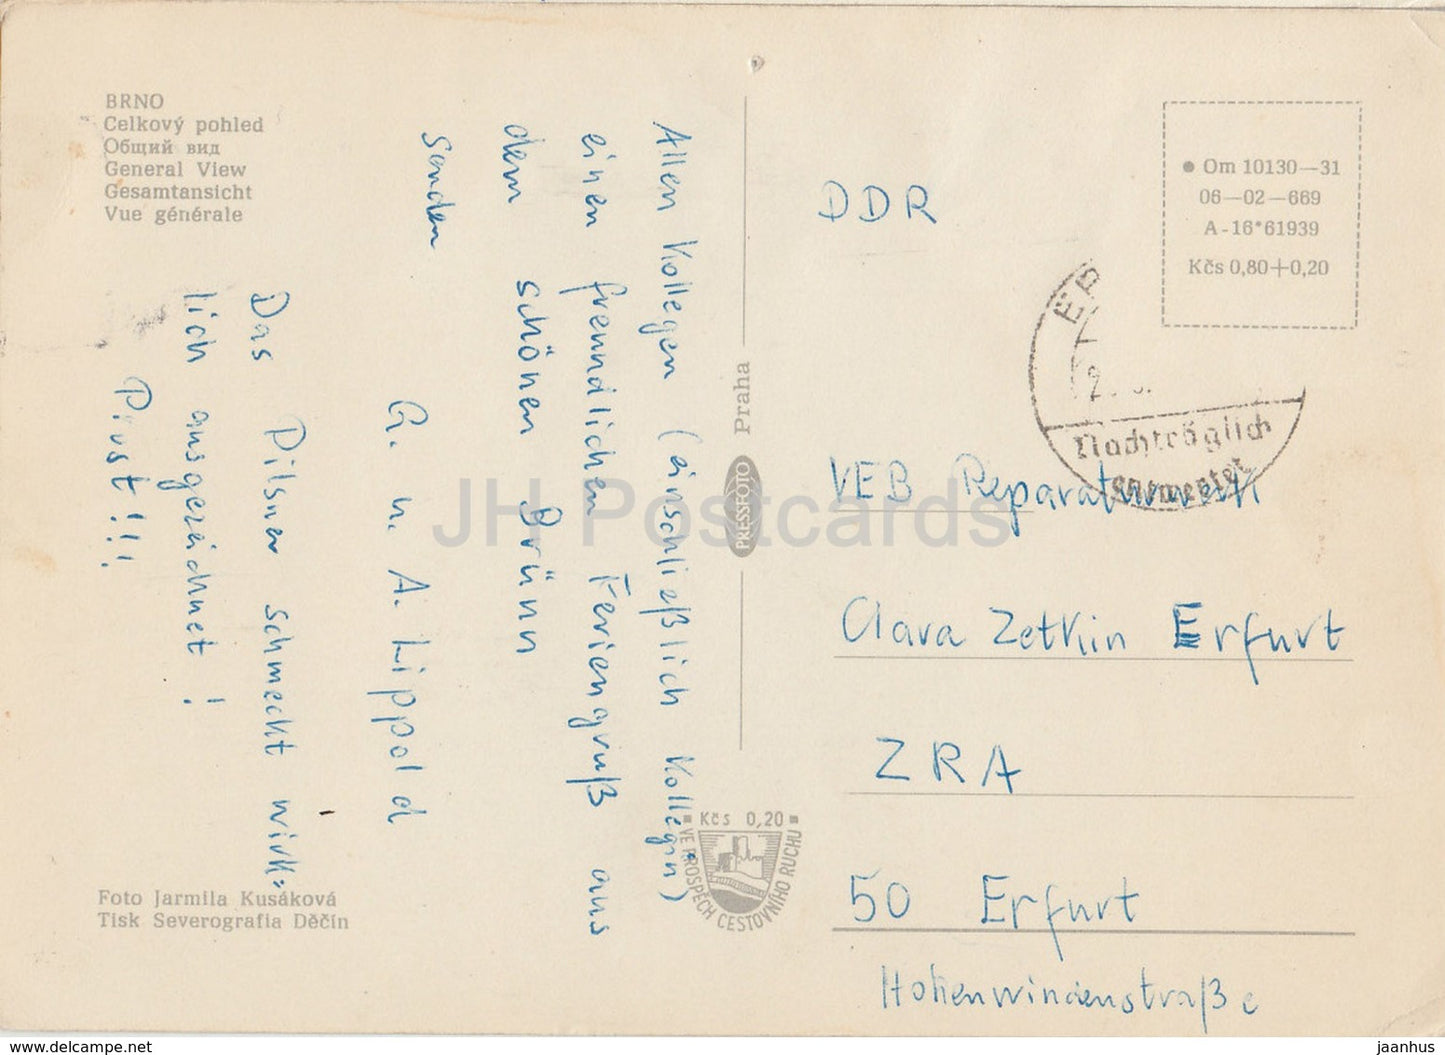 BRNO
Celkový pohled
Общий вид
General View
Gesamtansicht
Vue générale
Allen Kollegen (einschließlich Kollegin)
einen freundlichen Feriengruß aus
dem schönen Brünn
senden
G. u. A. Lippold
Das Pilsner schmeckt wirk=
lich ausgezeichnet!
Prost!!!
Foto Jarmila Kusáková
Tisk Severografia Děčín
PRESSFOTO Praha
Kčs 0,20
VE PROSPĚCH CESTOVNÍHO RUCHU
• Om 10130—31
06—02—669
A-16*61939
Kčs 0,80+0,20
Nachträglich
entwertet
DDR
VEB Reparaturwerk
Clara Zetkin Erfurt
ZRA
50 Erfurt
Hohenwindenstraße
JH Postcards
www.delcampe.net
jaanhus